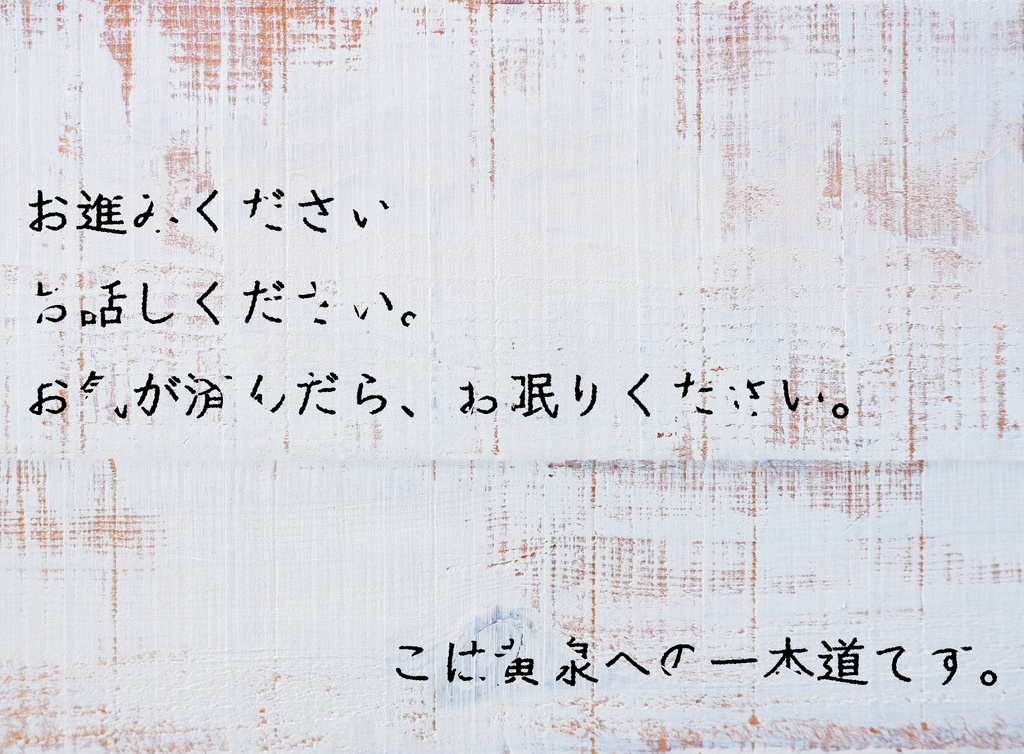 お進みください
お話しください。
お気が済んだら、お眠りください。
こは黄泉への一本道です。